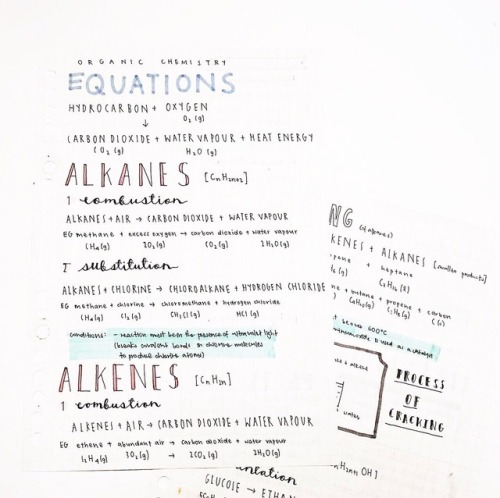 ORGANIC CHEMISTRY
EQUATIONS
HYDROCARBON + OXYGEN
O₂ (g)
↓
CARBON DIOXIDE + WATER VAPOUR + HEAT ENERGY
CO₂ (g) H₂O (g)
ALKANES [CnH2n+2]
1 combustion
ALKANES + AIR → CARBON DIOXIDE + WATER VAPOUR
EG methane + excess oxygen → carbon dioxide + water vapour
CH₄(g) 2O₂(g) CO₂(g) 2H₂O(g)
I substitution
ALKANES + CHLORINE → CHLOROALKANE + HYDROGEN CHLORIDE
EG methane + chlorine → chloromethane + hydrogen chloride
CH₄(g) Cl₂(g) CH₃Cl(g) HCl(g)
conditions: - reaction must been the presence of ultraviolet light
(breaks covalent bonds in chlorine molecules
to produce chlorine atoms)
ALKENES [CnH2n]
1 combustion
ALKENES + AIR → CARBON DIOXIDE + WATER VAPOUR
EG ethene + abundant air → carbon dioxide + water vapour
3O₂(g) 2CO₂(g) 2H₂O(g)
NG
KENES + ALKANES
+ heptane
+ propene + carbon
600°C
used as a catalyst
water
PROCESS
OF
CRACKING
OH]
GLUCOSE → ETHAN